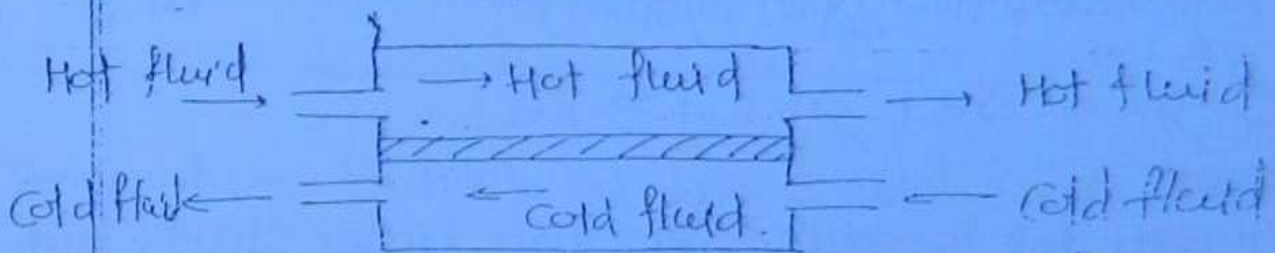 Hot fluid → Hot fluid → Hot fluid
Cold fluid ← ← Cold fluid. ← Cold fluid